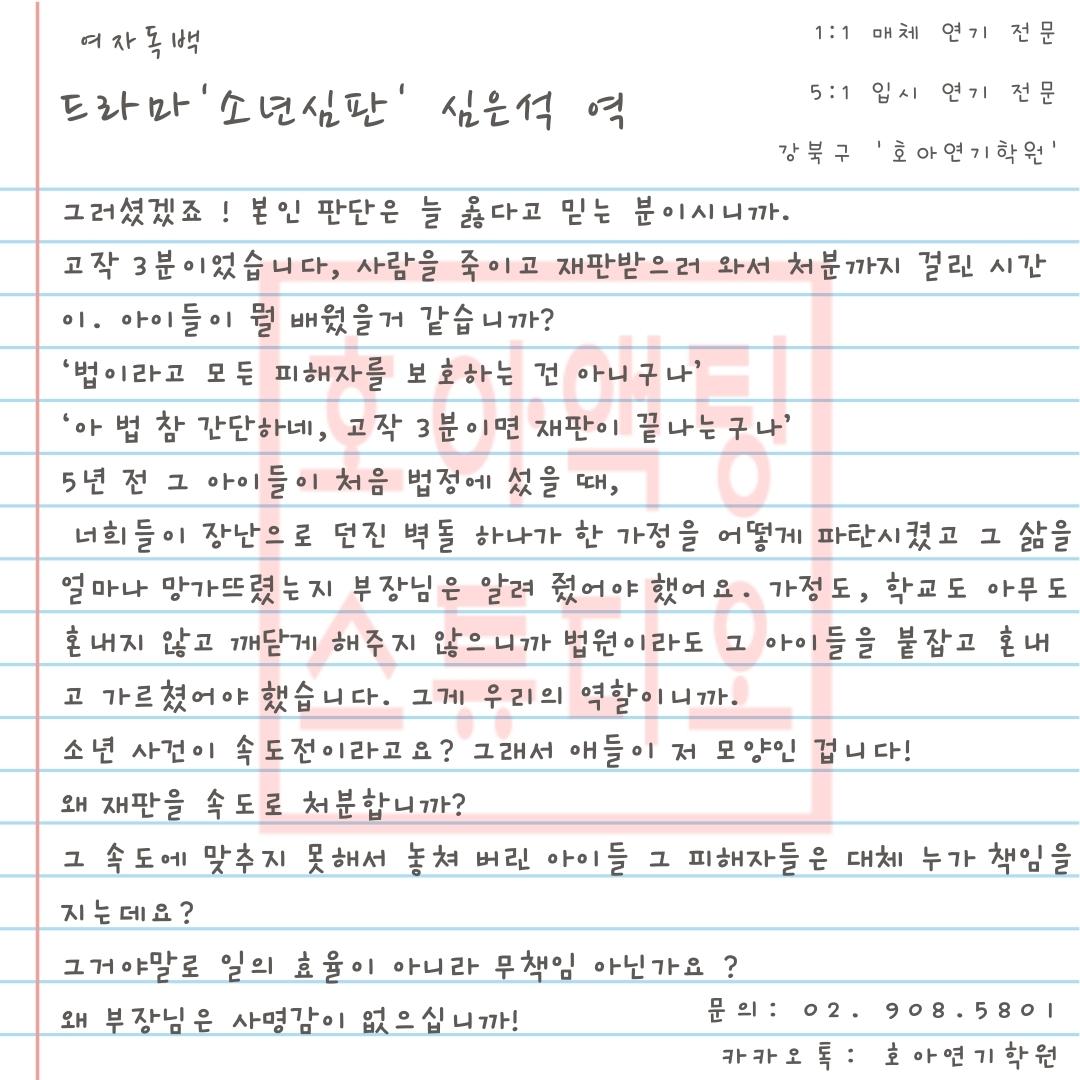 여자독백
드라마'소년심판' 심은석 역
1:1 매체 연기 전문
5:1 입시 연기 전문
강북구 '호아연기학원'
그러셨겠죠 ! 본인 판단은 늘 옳다고 믿는 분이시니까.
고작 3분이었습니다, 사람을 죽이고 재판받으러 와서 처분까지 걸린 시간
이. 아이들이 뭘 배웠을거 같습니까?
‘법이라고 모든 피해자를 보호하는 건 아니구나’
‘아 법 참 간단하네, 고작 3분이면 재판이 끝나는구나’
5년 전 그 아이들이 처음 법정에 섰을 때,
너희들이 장난으로 던진 벽돌 하나가 한 가정을 어떻게 파탄시켰고 그 삶을
얼마나 망가뜨렸는지 부장님은 알려 줬어야 했어요. 가정도, 학교도 아무도
혼내지 않고 깨닫게 해주지 않으니까 법원이라도 그 아이들을 붙잡고 혼내
고 가르쳤어야 했습니다. 그게 우리의 역할이니까.
소년 사건이 속도전이라고요? 그래서 애들이 저 모양인 겁니다!
왜 재판을 속도로 처분합니까?
그 속도에 맞추지 못해서 놓쳐 버린 아이들 그 피해자들은 대체 누가 책임을
지는데요?
그거야말로 일의 효율이 아니라 무책임 아닌가요 ?
왜 부장님은 사명감이 없으십니까!
문의: 02. 908.5801
카카오톡: 호아연기학원
호아·액팅
스튜디오